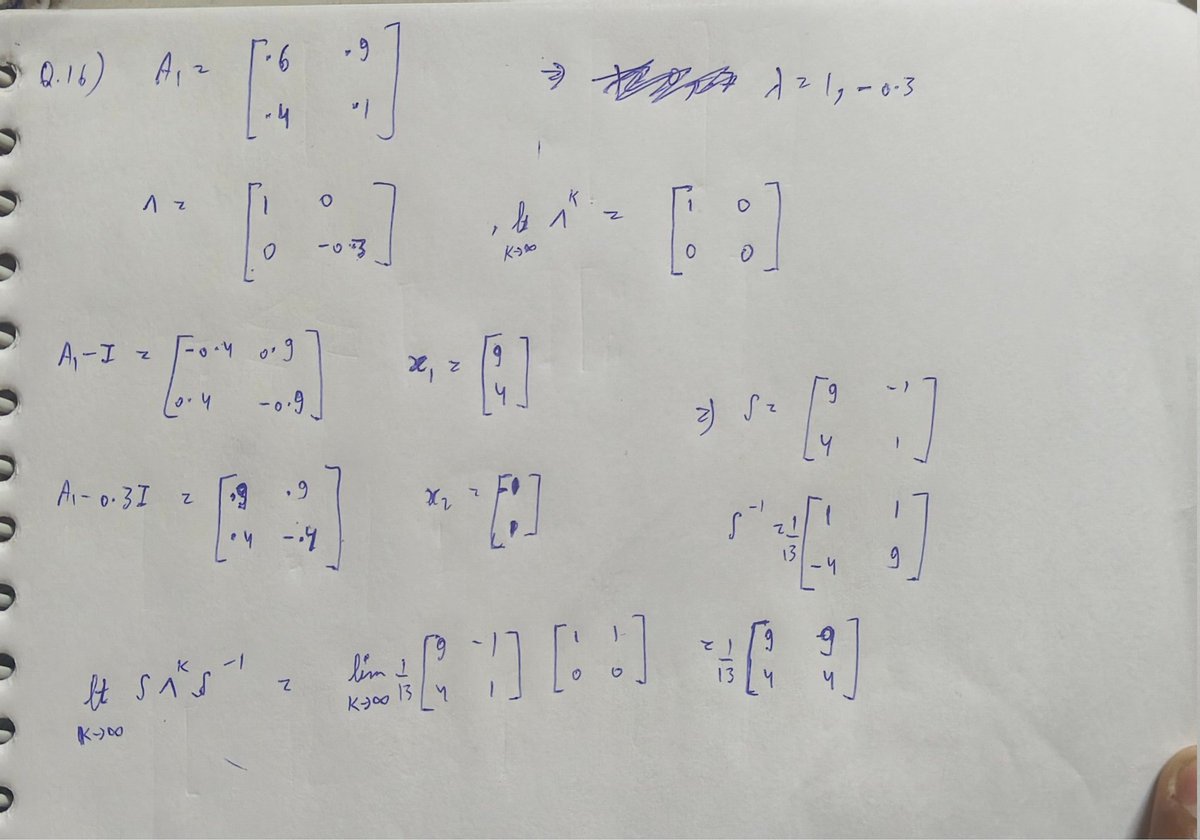 Q.16) A₁ = [.6 .9; .4 .1] ⇒ λ = 1, -0.3
Λ = [1 0; 0 -0.3] , lt K→∞ Λᴷ = [1 0; 0 0]
A₁-I = [-0.4 0.9; 0.4 -0.9] x₁ = [9; 4]
⇒) S = [9 -1; 4 1]
A₁-0.3I = [.9 .9; .4 -.4] x₂ = [-1; 1]
S⁻¹ = 1/13 [1 1; -4 9]
lt K→∞ S Λᴷ S⁻¹ = lim K→∞ 1/13 [9 -1; 4 1] [1 1; 0 0] = 1/13 [9 9; 4 4]